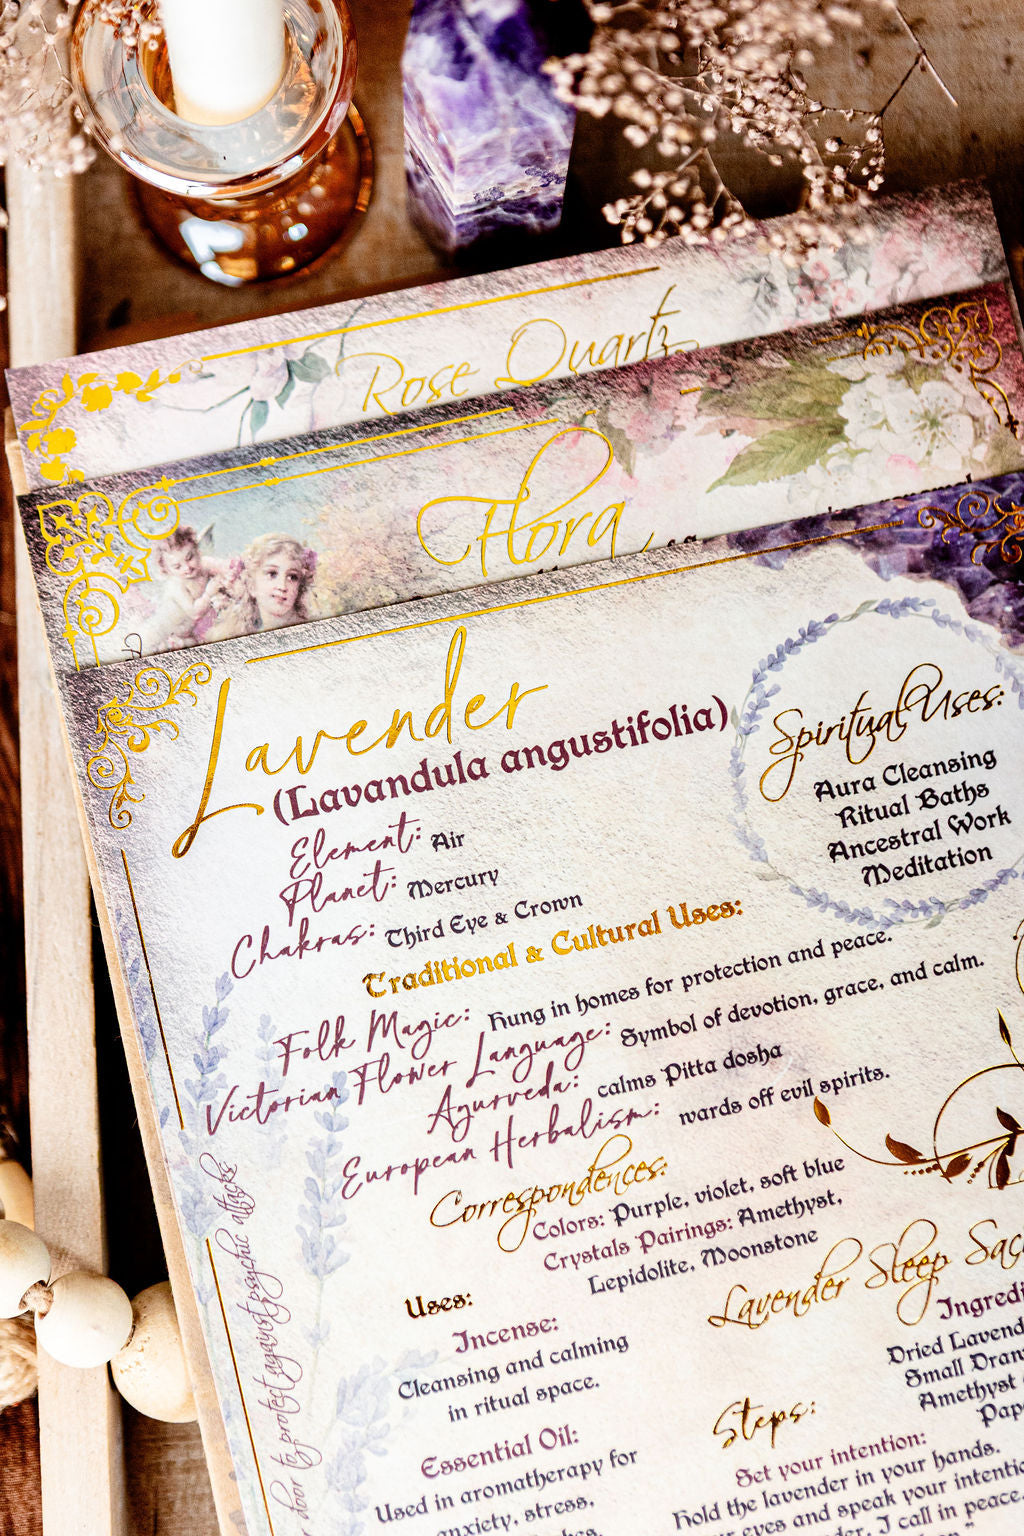 Rose Quartz
Flora
Lavender
(Lavandula angustifolia)
Element: Air
Planet: Mercury
Chakras: Third Eye & Crown
Spiritual Uses:
Aura Cleansing
Ritual Baths
Ancestral Work
Meditation
Traditional & Cultural Uses:
Folk Magic: Hung in homes for protection and peace.
Victorian Flower Language: Symbol of devotion, grace, and calm.
Ayurveda: calms Pitta dosha
European Herbalism: wards off evil spirits.
Correspondences:
Colors: Purple, violet, soft blue
Crystals Pairings: Amethyst,
Lepidolite, Moonstone
Uses:
Incense:
Cleansing and calming
in ritual space.
Essential Oil:
Used in aromatherapy for
anxiety, stress,
Lavender Sleep
Dried
Small
Amethyst
Steps:
Set your intention:
Hold the lavender in your hands.
eyes and speak your
I call in peace
door to protect against psychic attacks